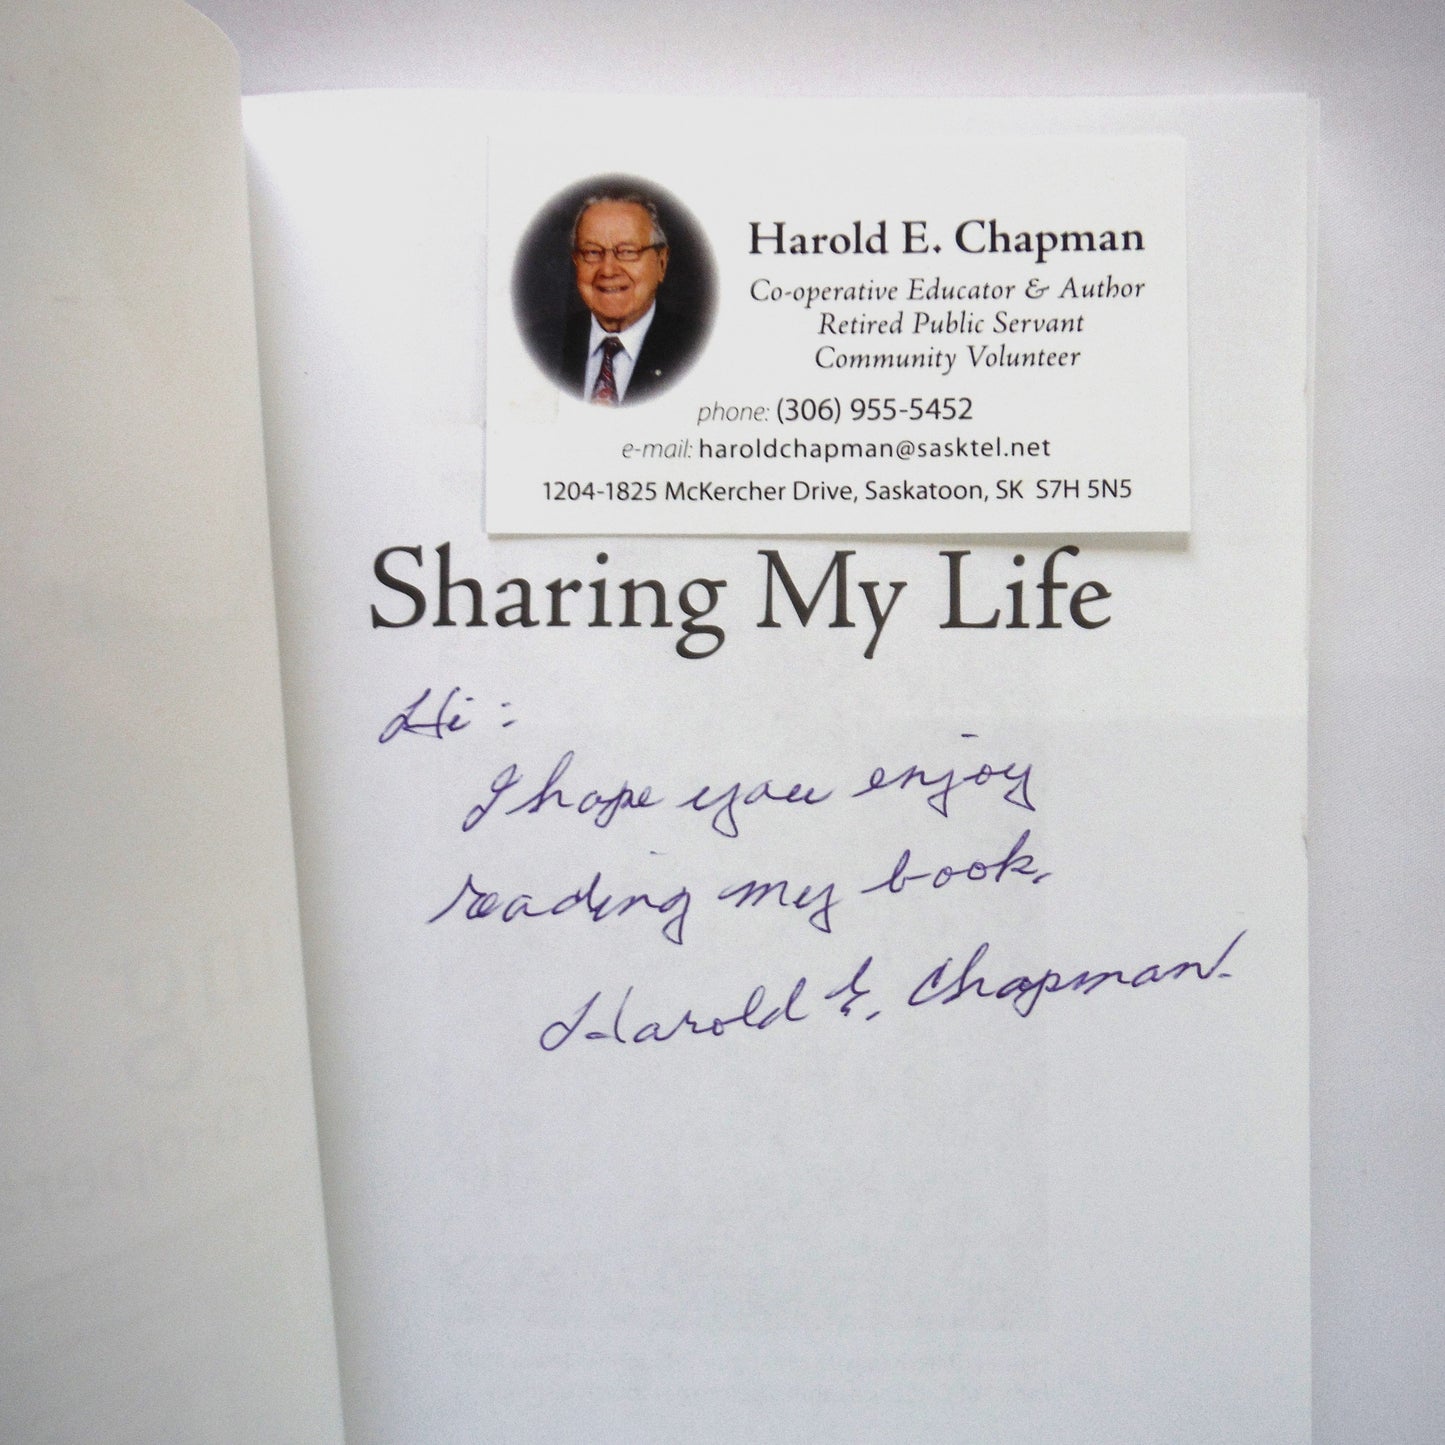 Harold E. Chapman
Co-operative Educator & Author
Retired Public Servant
Community Volunteer
phone: (306) 955-5452
e-mail: haroldchapman@sasktel.net
1204-1825 McKercher Drive, Saskatoon, SK S7H 5N5
Sharing My Life
Hi :
I hope you enjoy
reading my book.
Harold E. Chapman.